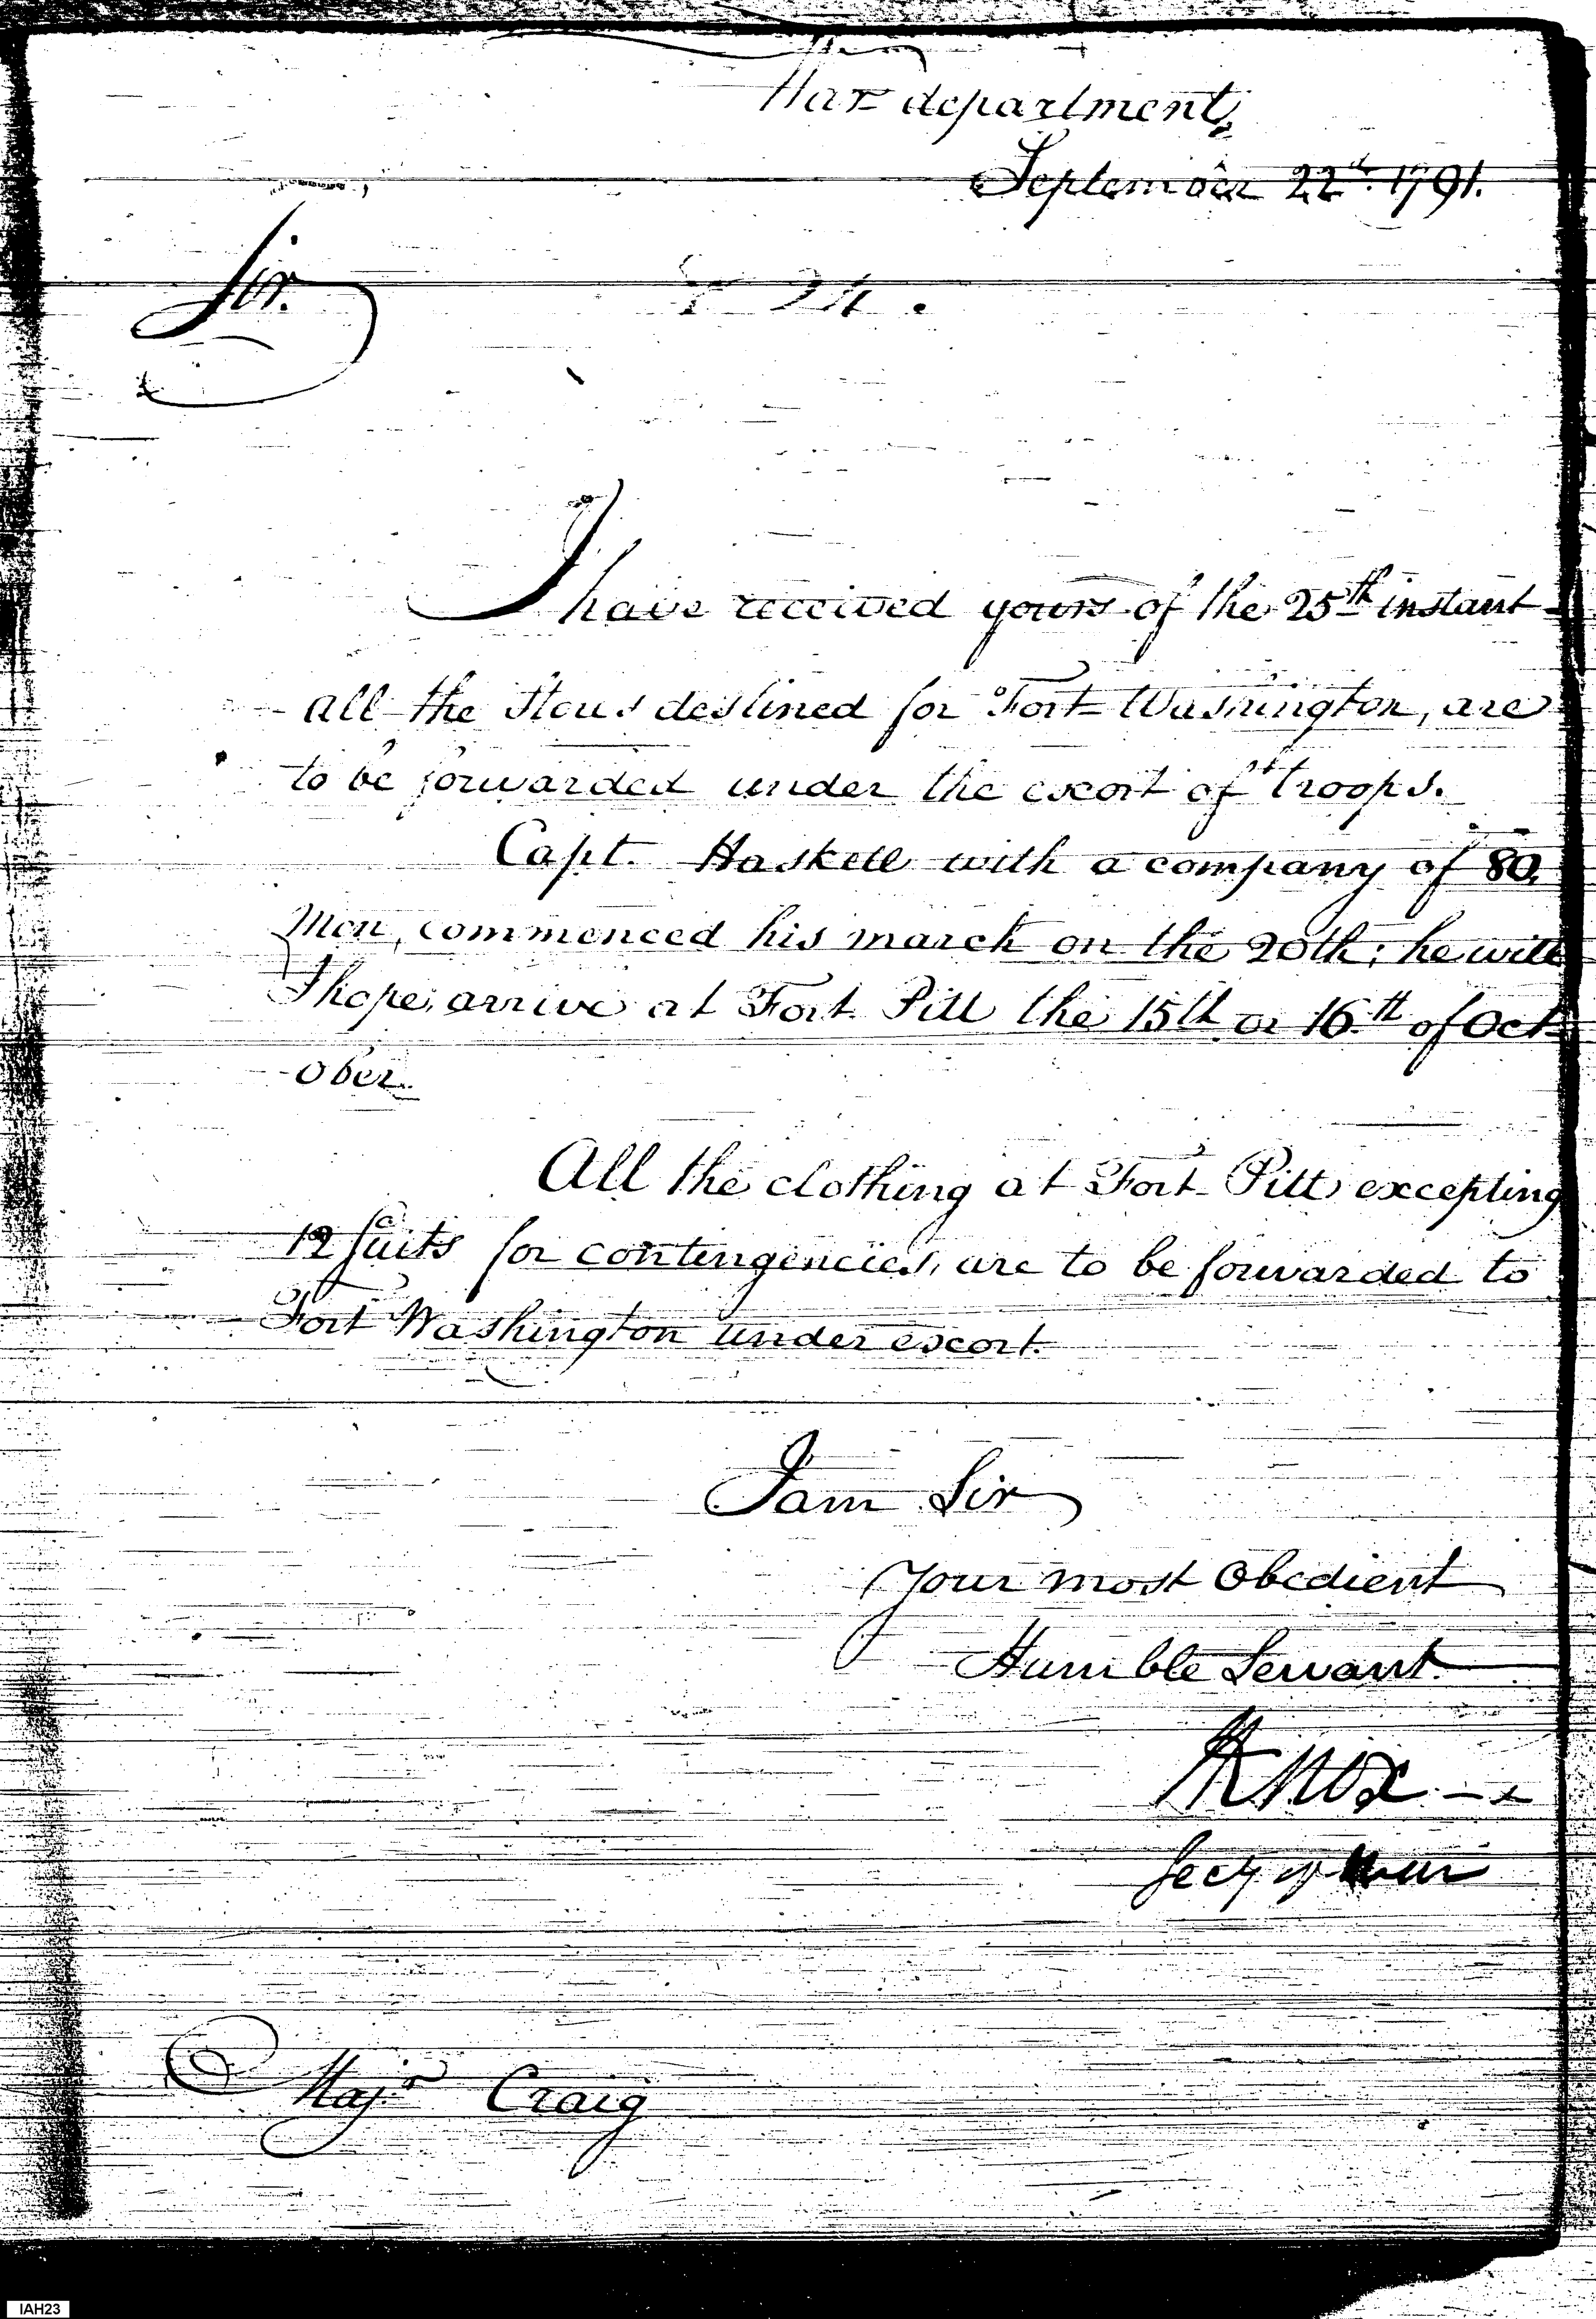 War department,
September 22d. 1791.
Sir.
24.
I have received yours of the 25th instant
all the Stores destined for Fort Washington, are
to be forwarded under the escort of troops.
Capt. Haskell with a company of 80,
Men, commenced his march on the 20th; he will
I hope, arrive at Fort Pitt the 15th or 16th of Oct-
ober.
All the clothing at Fort Pitt, excepting
12 suits for contingencies, are to be forwarded to
Fort Washington under escort.
I am Sir
Your most Obedient
Humble Servant.
HKnox
Secy of War
Majr Craig
IAH23